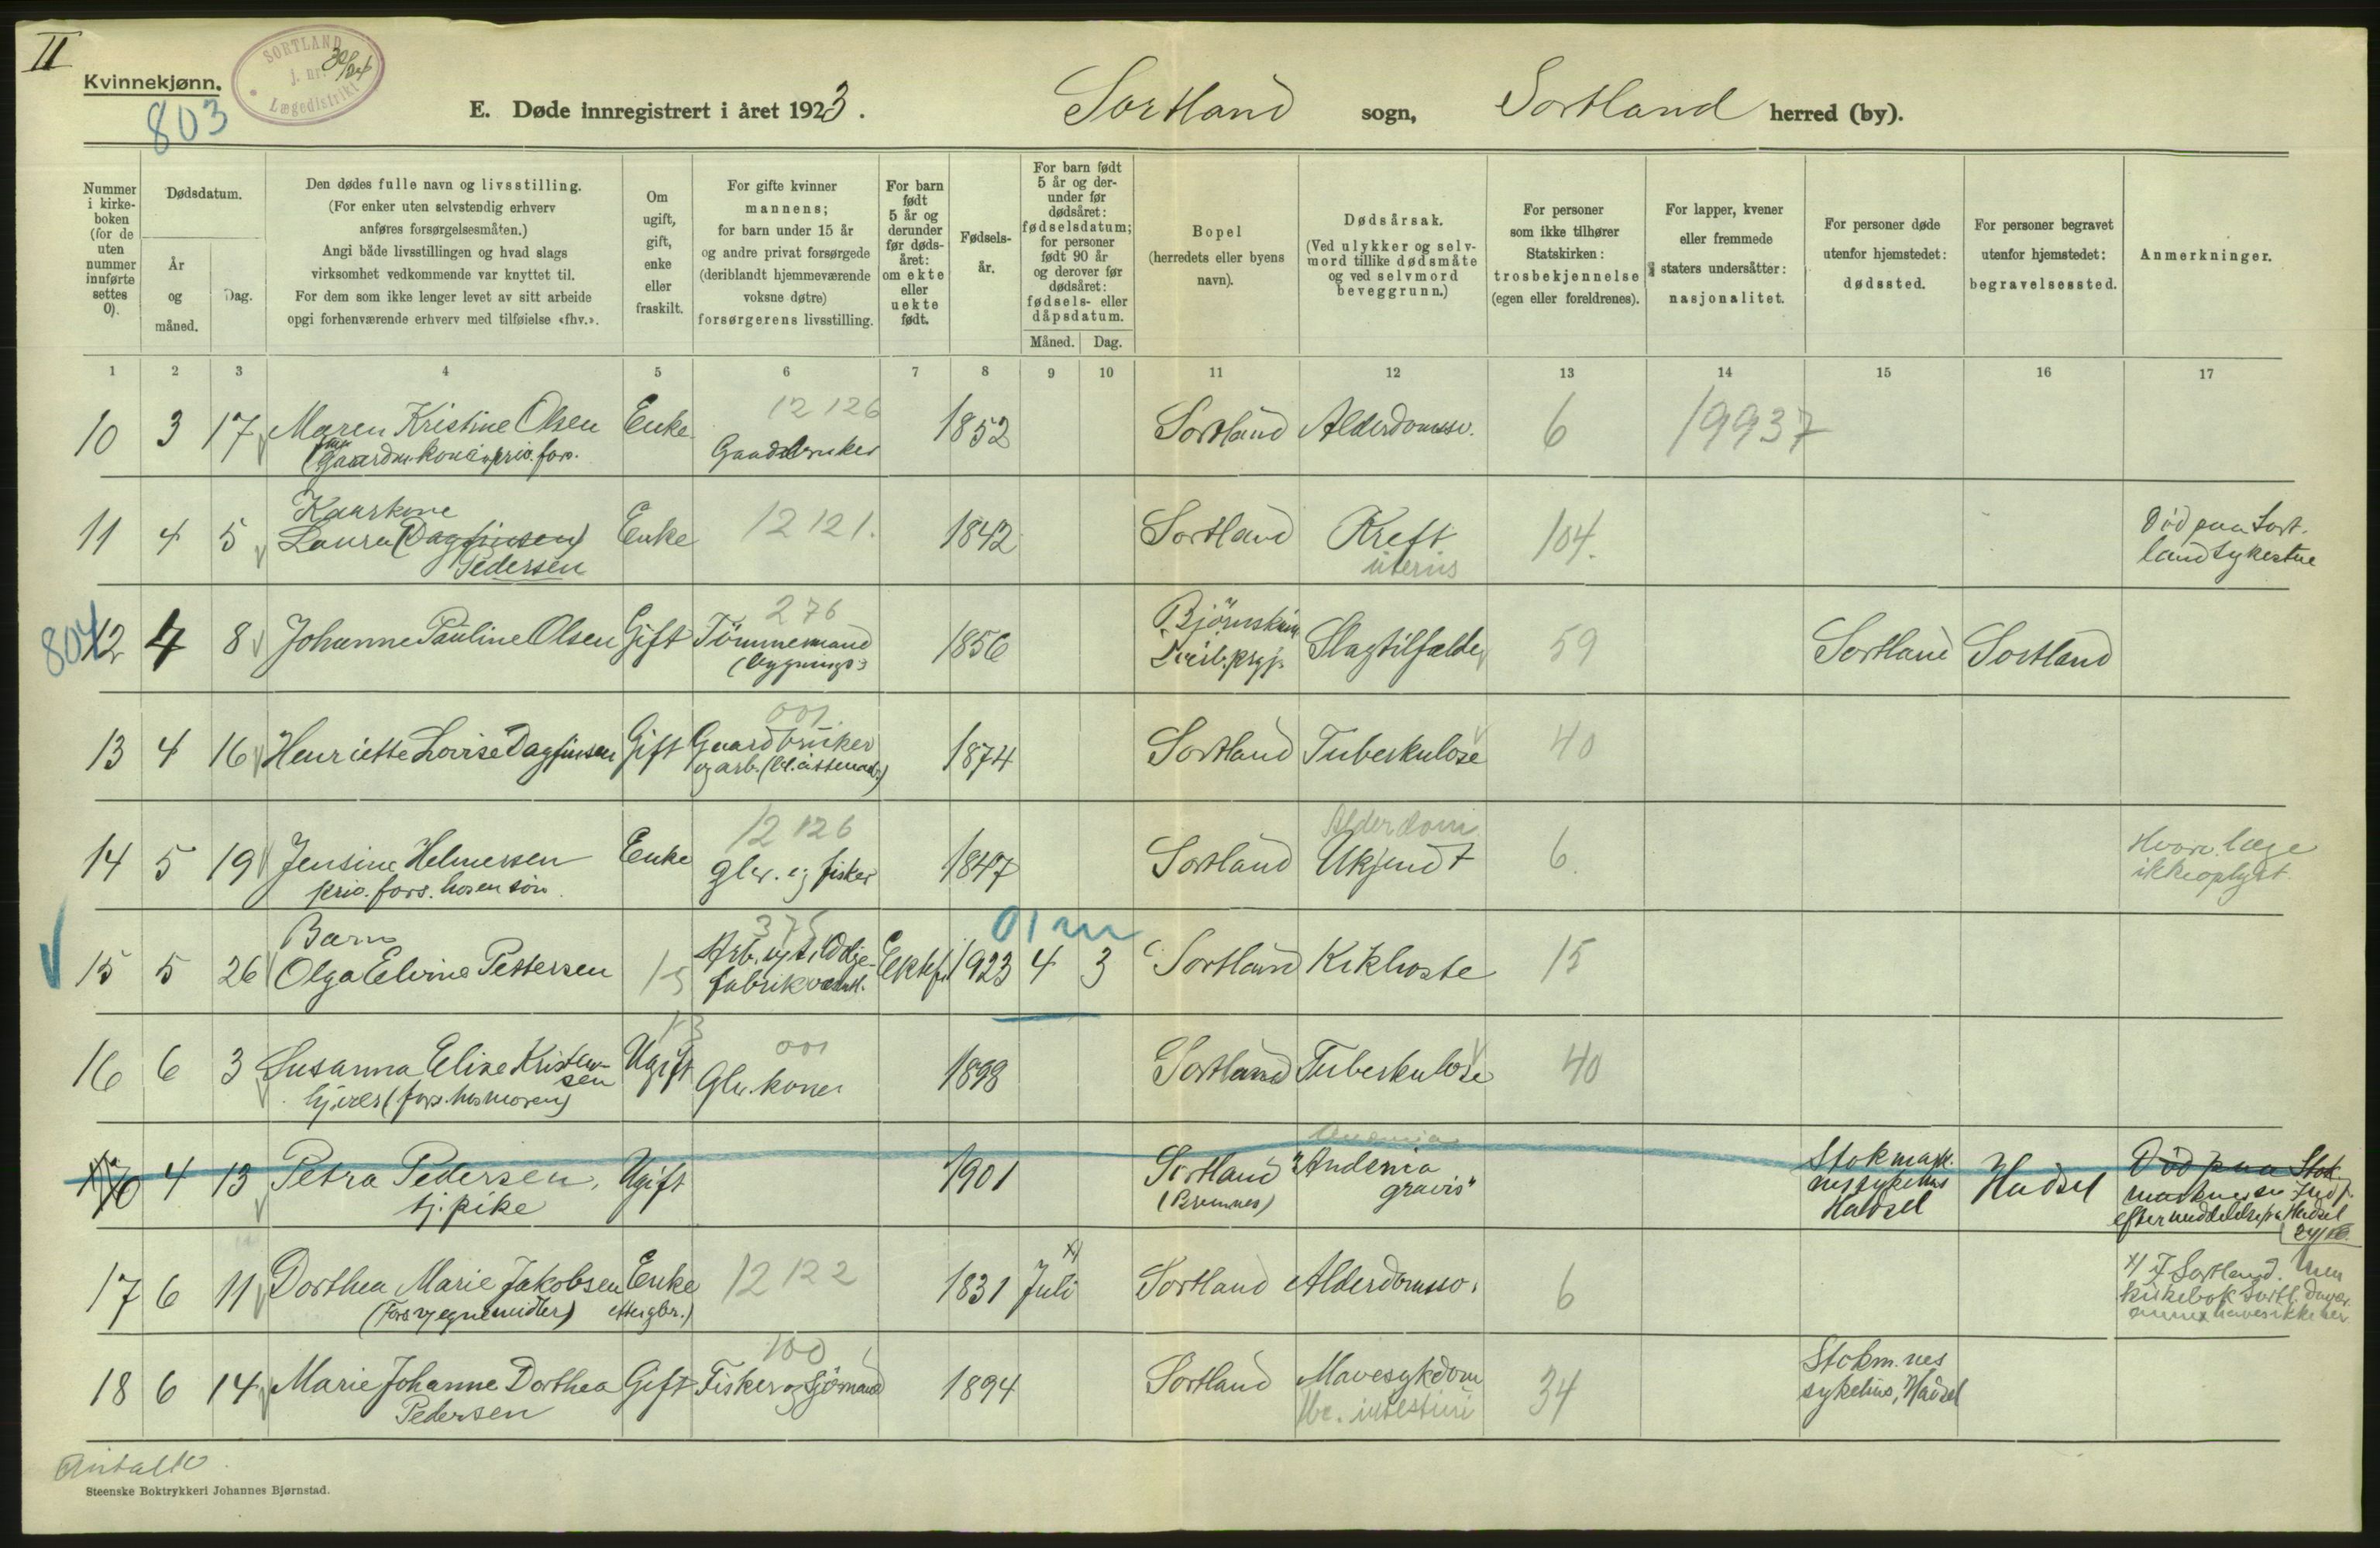 II
Kvinnekjønn.
SORTLAND
j. nr. 30/24
Lægedistrikt
803
E. Døde innregistrert i året 1923.
Sortland sogn, Sortland herred (by).
Nummer i kirke-boken (for de uten nummer innførte settes 0).
Dødsdatum.
År og måned.
Dag.
Den dødes fulle navn og livsstilling.
(For enker uten selvstendig erhverv
anføres forsørgelsesmåten.)
Angi både livsstillingen og hvad slags
virksomhet vedkommende var knyttet til.
For dem som ikke lenger levet av sitt arbeide
opgi forhenværende erhverv med tilføielse «fhv.».
Om ugift, gift, enke eller fraskilt.
For gifte kvinner
mannens;
for barn under 15 år
og andre privat forsørgede
(deriblandt hjemmeværende
voksne døtre)
forsørgerens livsstilling.
For barn født 5 år og derunder før døds-året: om ekte eller uekte født.
Fødsels-år.
For barn født 5 år og der-under før dødsåret: fødselsdatum; for personer født 90 år og derover før dødsåret: fødsels- eller dåpsdatum.
Måned. Dag.
Bopel
(herredets eller byens
navn).
Dødsårsak.
(Ved ulykker og selv-
mord tillike dødsmåte
og ved selvmord
beveggrunn.)
For personer
som ikke tilhører
Statskirken:
trosbekjennelse
(egen eller foreldrenes).
For lapper, kvener
eller fremmede
staters undersåtter:
nasjonalitet.
For personer døde
utenfor hjemstedet:
dødssted.
For personer begravet
utenfor hjemstedet:
begravelsessted.
Anmerkninger.
1 2 3 4 5 6 7 8 9 10 11 12 13 14 15 16 17
10 3 17 Maren Kristine Olsen Enke 12 126 1852 Sortland Alderdomssv. 6 19937
priv. fors. Gaardbruker
11 4 5 Kaarkone
Laura (Dagfinsen) Enke 12 121. 1842 Sortland Kreft 104. Død paa Sort-
Pedersen uterus land sykestue
804
12 4 8 Johanne Pauline Olsen Gift 276 Tømmermand 1856 Bjørnskin Slagtilfælde 59 Sortland Sortland
(bygnings-)
13 4 16 Henriette Lovise Dagfinsen Gift 001 Gaardbruker 1874 Sortland Tuberkulose 40
og arb.
14 5 19 Jensine Helmersen Enke 12 126 1847 Sortland Alderdom 6. Hvor. læge
priv. fors. hos en søn Gbr. og fisker Ukjendt ikke oplyst.
01 m
15 5 26 Barn
Olga Elvine Pettersen 15 375 Arb. Ektef. 1923 4 3 Sortland Kikhoste 15
fabrik
16 6 3 Susanna Elise Kristen- Ugift 13 001 1898 Sortland Tuberkulose 40
sen Gbr. kone
(fors. hos moren)
17 0 4 13 Petra Pedersen, Ugift 1901 Sortland "Andemia Stokmark- Hadsel Død paa Stok
tj. pike (Bremnes) gravis" nes sykehus marknes
Hadsel efter meddelelse fra Hadsel
17 6 11 Dorthea Marie Jakobsen Enke 12 122 1831 Juli x) Sortland Alderdomssv. 6 x) I Sortland. Men
(Fors. v. egne midler) efter gbr.) kirkebok Sortl.
haves ikke her
18 6 14 Marie Johanne Dorthea Gift 100 Fisker og Sjømand 1894 Sortland Mavesykdom 34 Stokm.nes
Pedersen tbc. intestini sykehus, Hadsel
Antal 10.
Steenske Boktrykkeri Johannes Bjørnstad.